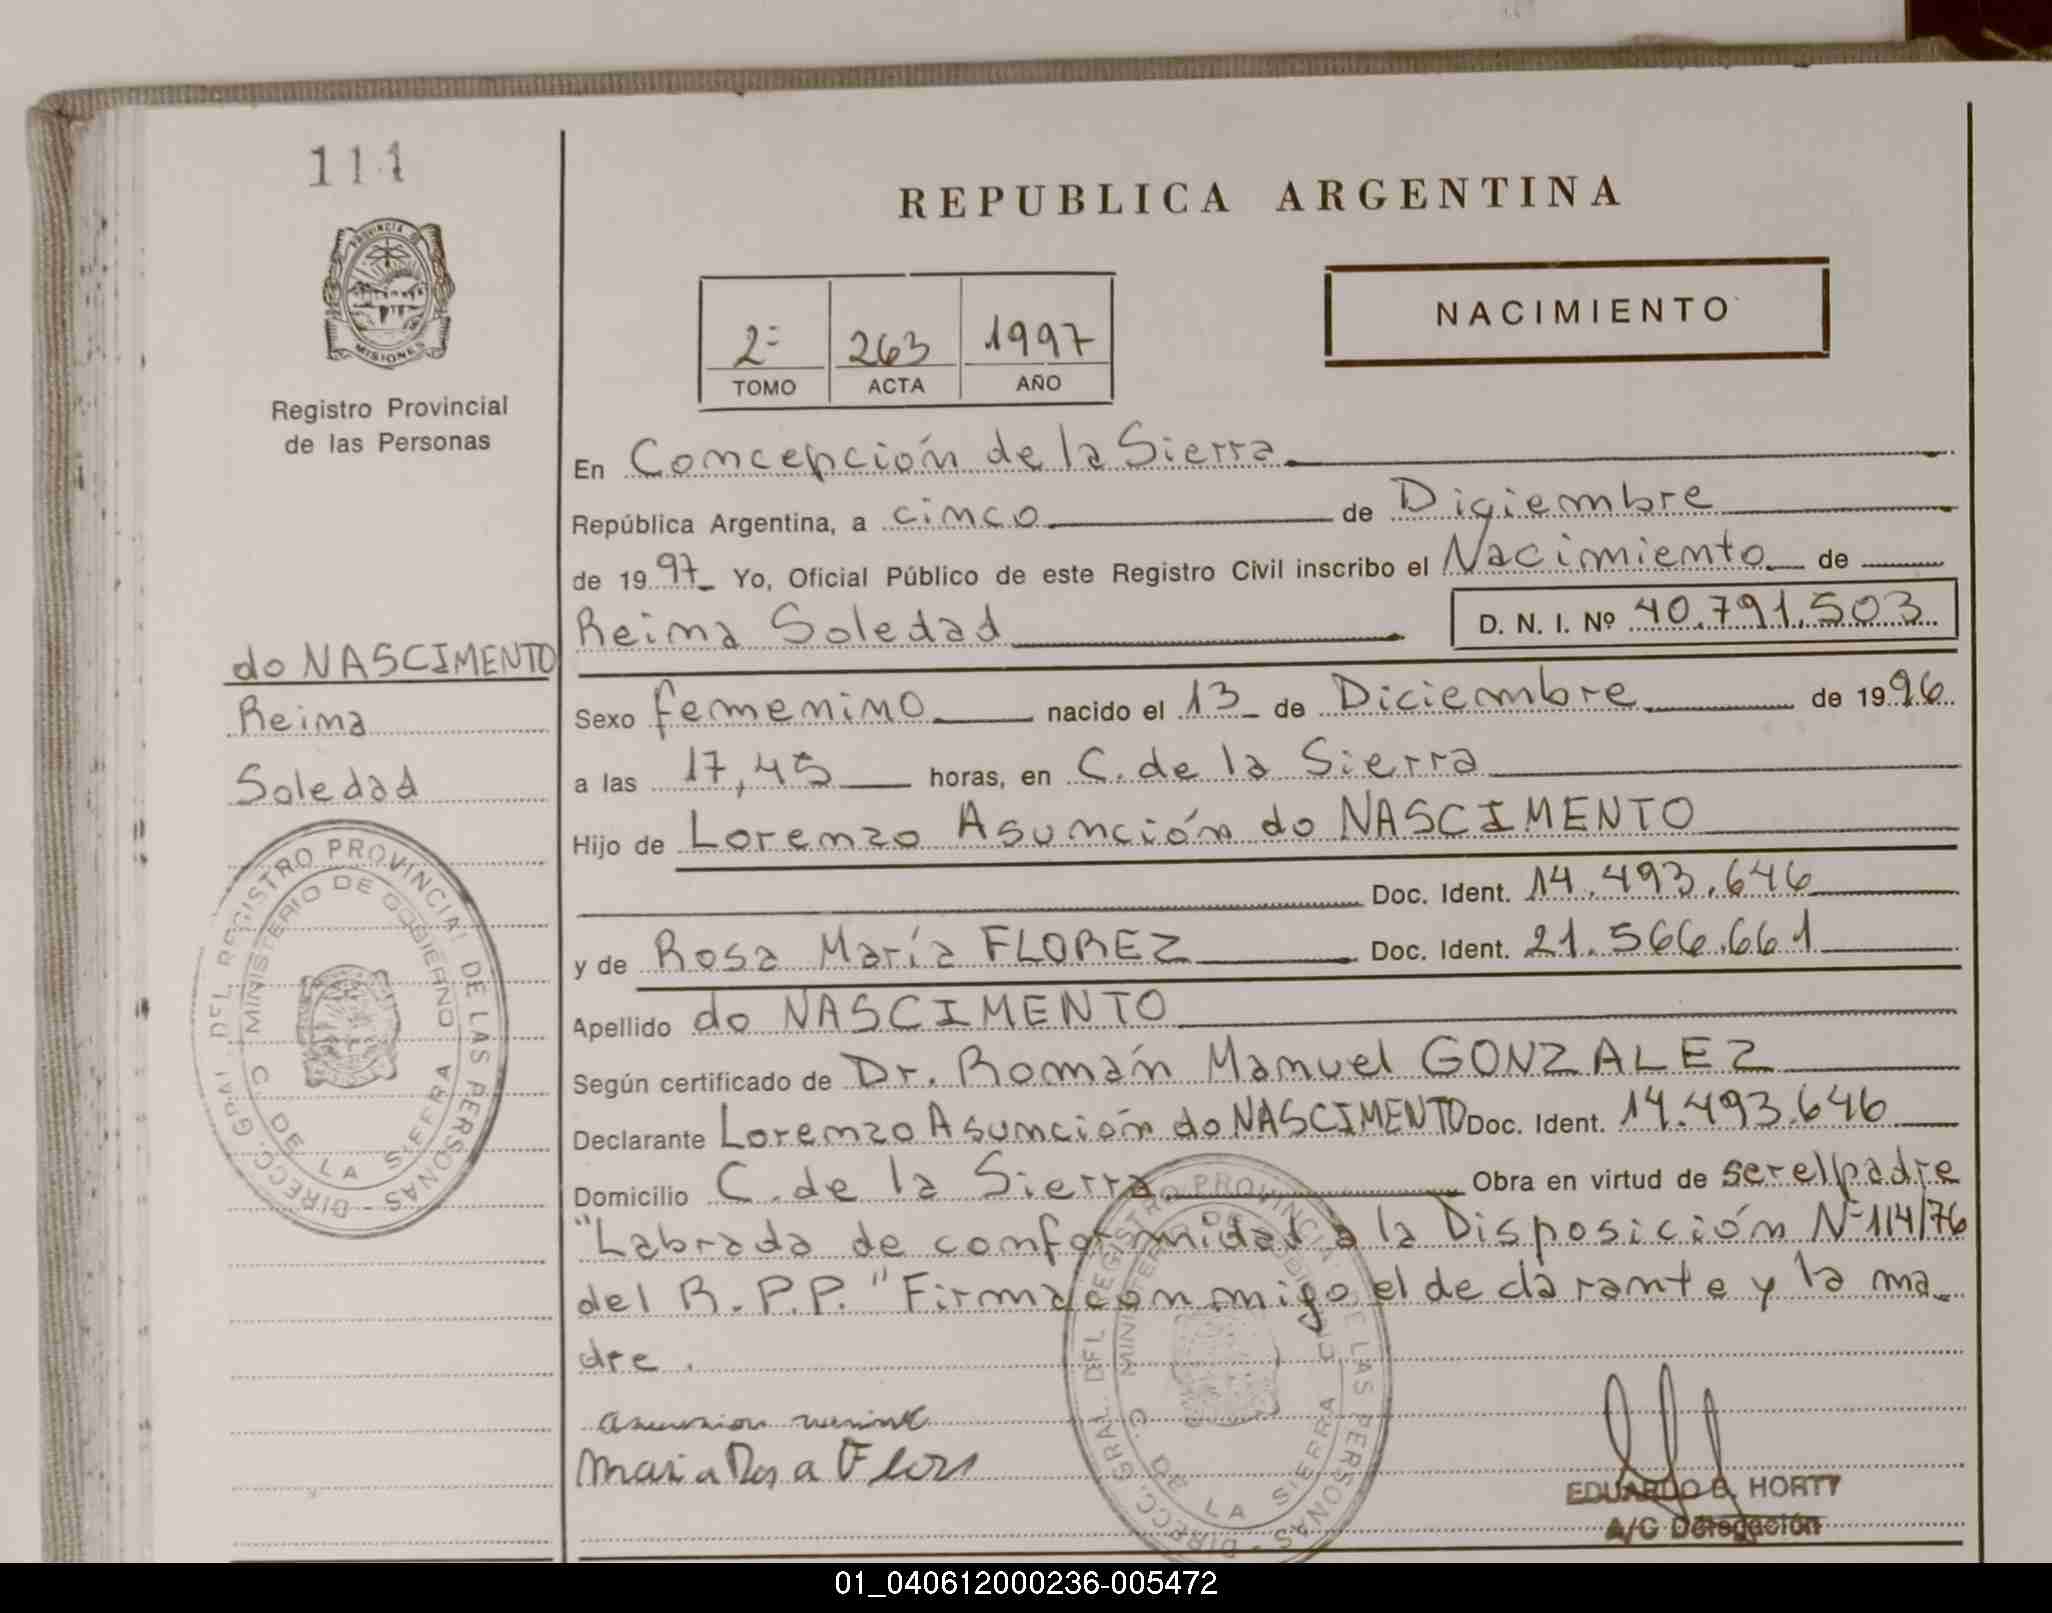 111
REPUBLICA ARGENTINA
PROVINCIA DE
MISIONES
Registro Provincial
de las Personas
NACIMIENTO
2= 263 1997
TOMO ACTA AÑO
En Concepción de la Sierra
República Argentina, a cinco de Diciembre
de 1997 Yo, Oficial Público de este Registro Civil inscribo el Nacimiento de
Reina Soledad D. N. I. Nº 40.791.503
do NASCIMENTO
Reina
Soledad
Sexo femenino nacido el 13 de Diciembre de 1996
a las 17,45 horas, en C. de la Sierra
Hijo de Lorenzo Asunción do NASCIMENTO
Doc. Ident. 14.493.646
y de Rosa María FLOREZ Doc. Ident. 21.566.661
Apellido do NASCIMENTO
Según certificado de Dr. Román Manuel GONZALEZ
Declarante Lorenzo Asunción do NASCIMENTO Doc. Ident. 14.493.646
Domicilio C. de la Sierra Obra en virtud de ser el padre
"Labrada de conformidad a la Disposición Nº 114/76
del R.P.P." Firma conmigo el declarante y la ma-
dre.
Maria Rosa Flores
DIRECC. GRAL. DEL REGISTRO PROVINCIAL DE LAS PERSONAS
MINISTERIO DE GOBIERNO
C. DE LA SIERRA
DIRECC. GRAL. DEL REGISTRO PROVINCIAL DE LAS PERSONAS
MINISTERIO DE GOBIERNO
C. DE LA SIERRA
EDUARDO B. HORTT
A/C Delegación
01_040612000236-005472